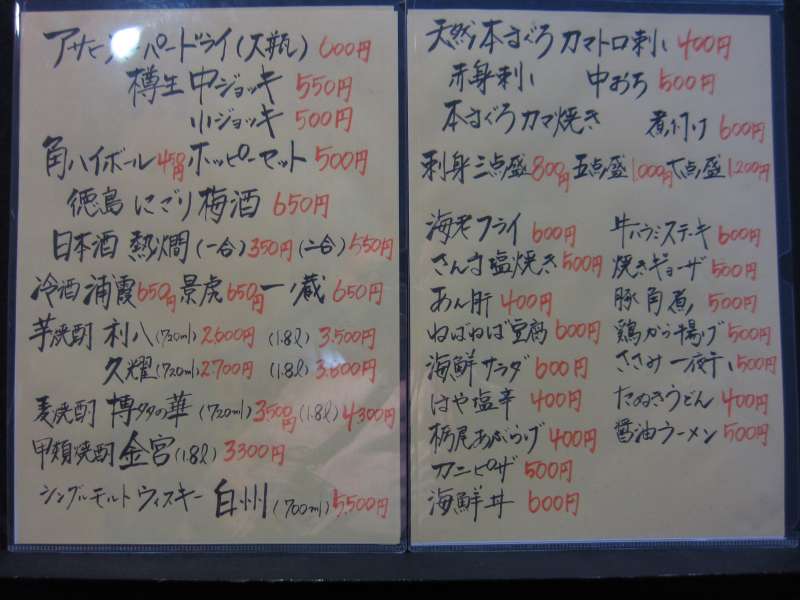 アサヒスーパードライ(大瓶) 600円
樽生中ジョッキ 550円
小ジョッキ 500円
角ハイボール450円 ホッピーセット 500円
徳島にごり梅酒 650円
日本酒 熱燗(一合)350円(二合)550円
冷酒 浦霞650円 景虎650円 一ノ蔵 650円
芋焼酎 利八(720ml)2600円 (1.8l) 3.500円
久耀(720ml)2700円 (1.8l) 3.600円
麦焼酎 博多の華(720ml)3500円(1.8l)4300円
甲類焼酎 金宮(1.8l) 3300円
シングルモルトウィスキー 白州(700ml)5,500円
天然本まぐろカマトロ刺し 400円
赤身刺し 中おち 500円
本まぐろカマ焼き 煮付け 600円
刺身三点盛800円 五点盛1,000円 六点盛1,200円
海老フライ 600円
さんま塩焼き 500円
あん肝 400円
ねばねば豆腐 600円
海鮮サラダ 600円
はや塩辛 400円
栃尾あぶらげ 400円
カニピザ 500円
海鮮丼 600円
牛ハラミステーキ 600円
焼きギョーザ 500円
豚角煮 500円
鶏から揚げ 500円
ささみ一夜干し 500円
たぬきうどん 400円
醤油ラーメン 500円